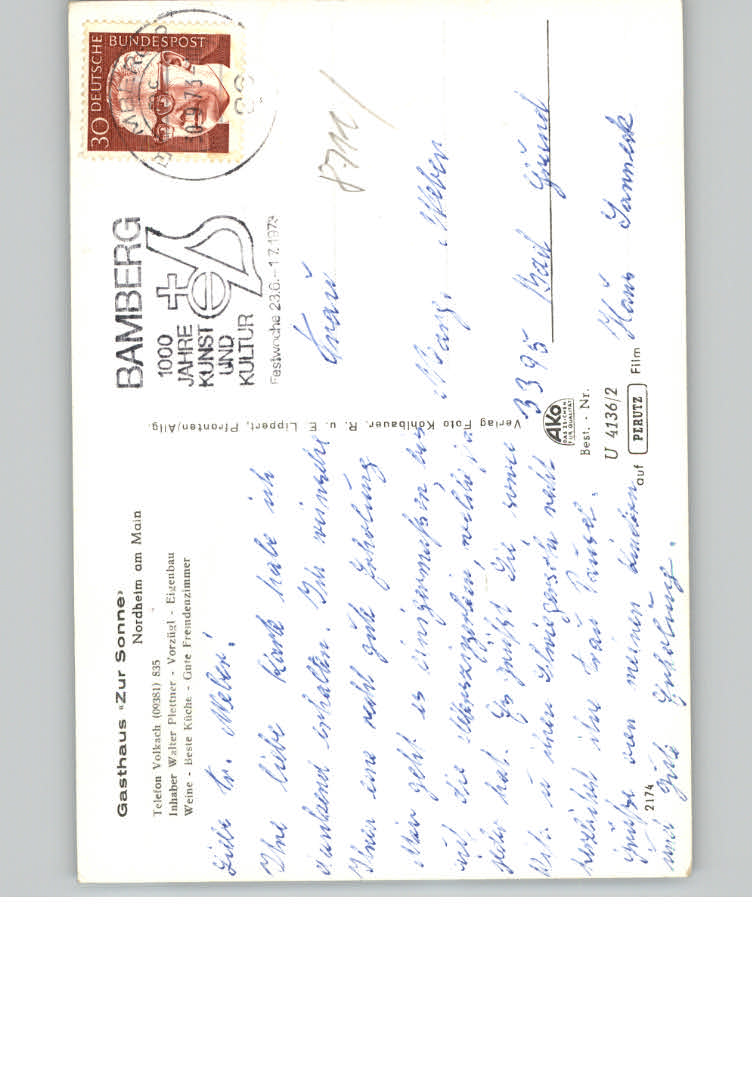 Gasthaus «Zur Sonne»
Nordheim am Main
Telefon Volkach (09381) 835
Inhaber Walter Plettner - Vorzügl - Eigenbau
Weine - Beste Küche - Gute Fremdenzimmer
Liebe Fr. Weber!
Ihre liebe Karte habe ich
dankend erhalten. Ich wünsche
Ihnen eine recht gute Erholung
Mir geht es einigermaßen, bis
auf die
jeder hat. Es grüßt Sie sowie
u ihren Schwägerin recht
herzlichst ihre Frau
Grüße von meinen Kindern
und gute Erholung.
2174
Verlag Foto Kohlbauer, R. u. E. Lippert, Pfronten/Allg.
BAMBERG
1000
JAHRE
KUNST
UND
KULTUR
Festwoche 23.6.–1.7.1973
30 DEUTSCHE BUNDESPOST
Frau
Marg. Weber
3395 Bad Grund
Haus
AKo
DAS ZEICHEN
FÜR QUALITÄT
Best.-Nr.
U 4136/2
auf PERUTZ Film